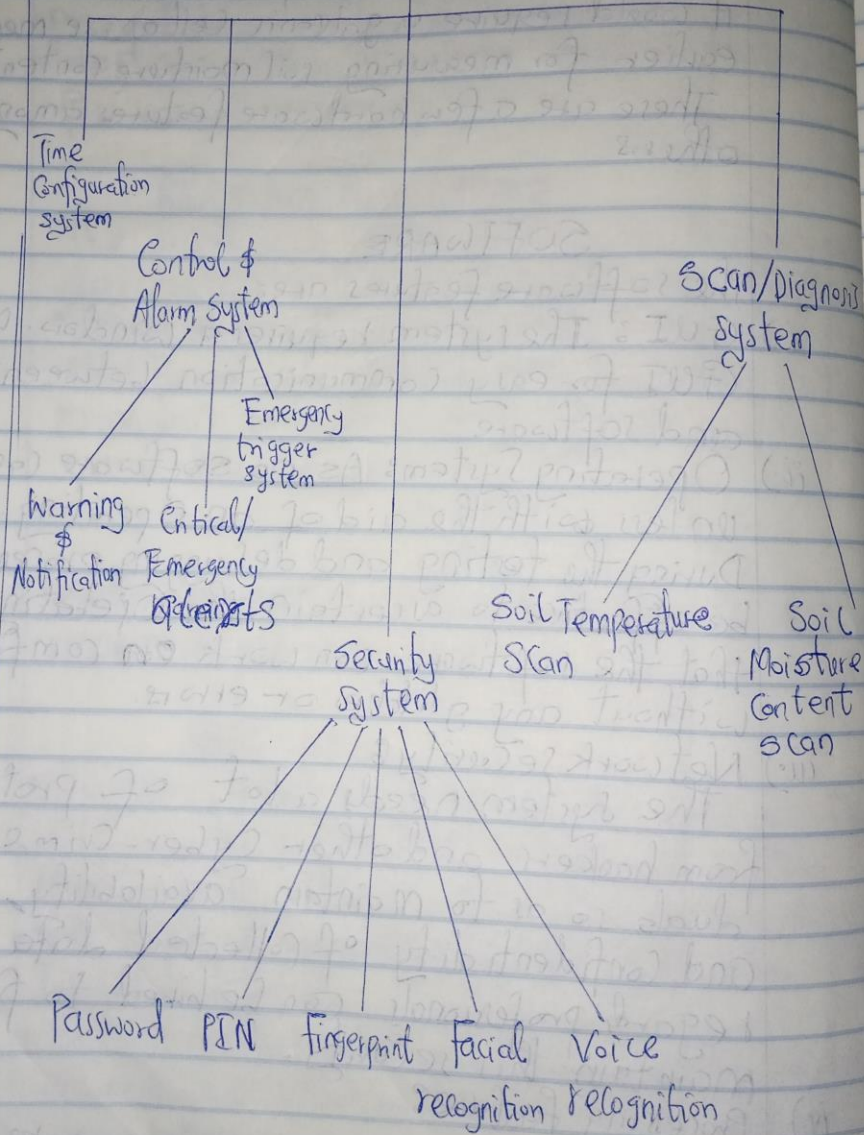 Time
Configuration
system
Control &
Alarm System
Scan/Diagnosis
System
Emergency
trigger
system
Warning
&
Notification
Critical/
Emergency
Soil Temperature
Scan
Soil
Moisture
Content
Scan
Security
System
Password
PIN
Fingerprint
Facial
recognition
Voice
recognition